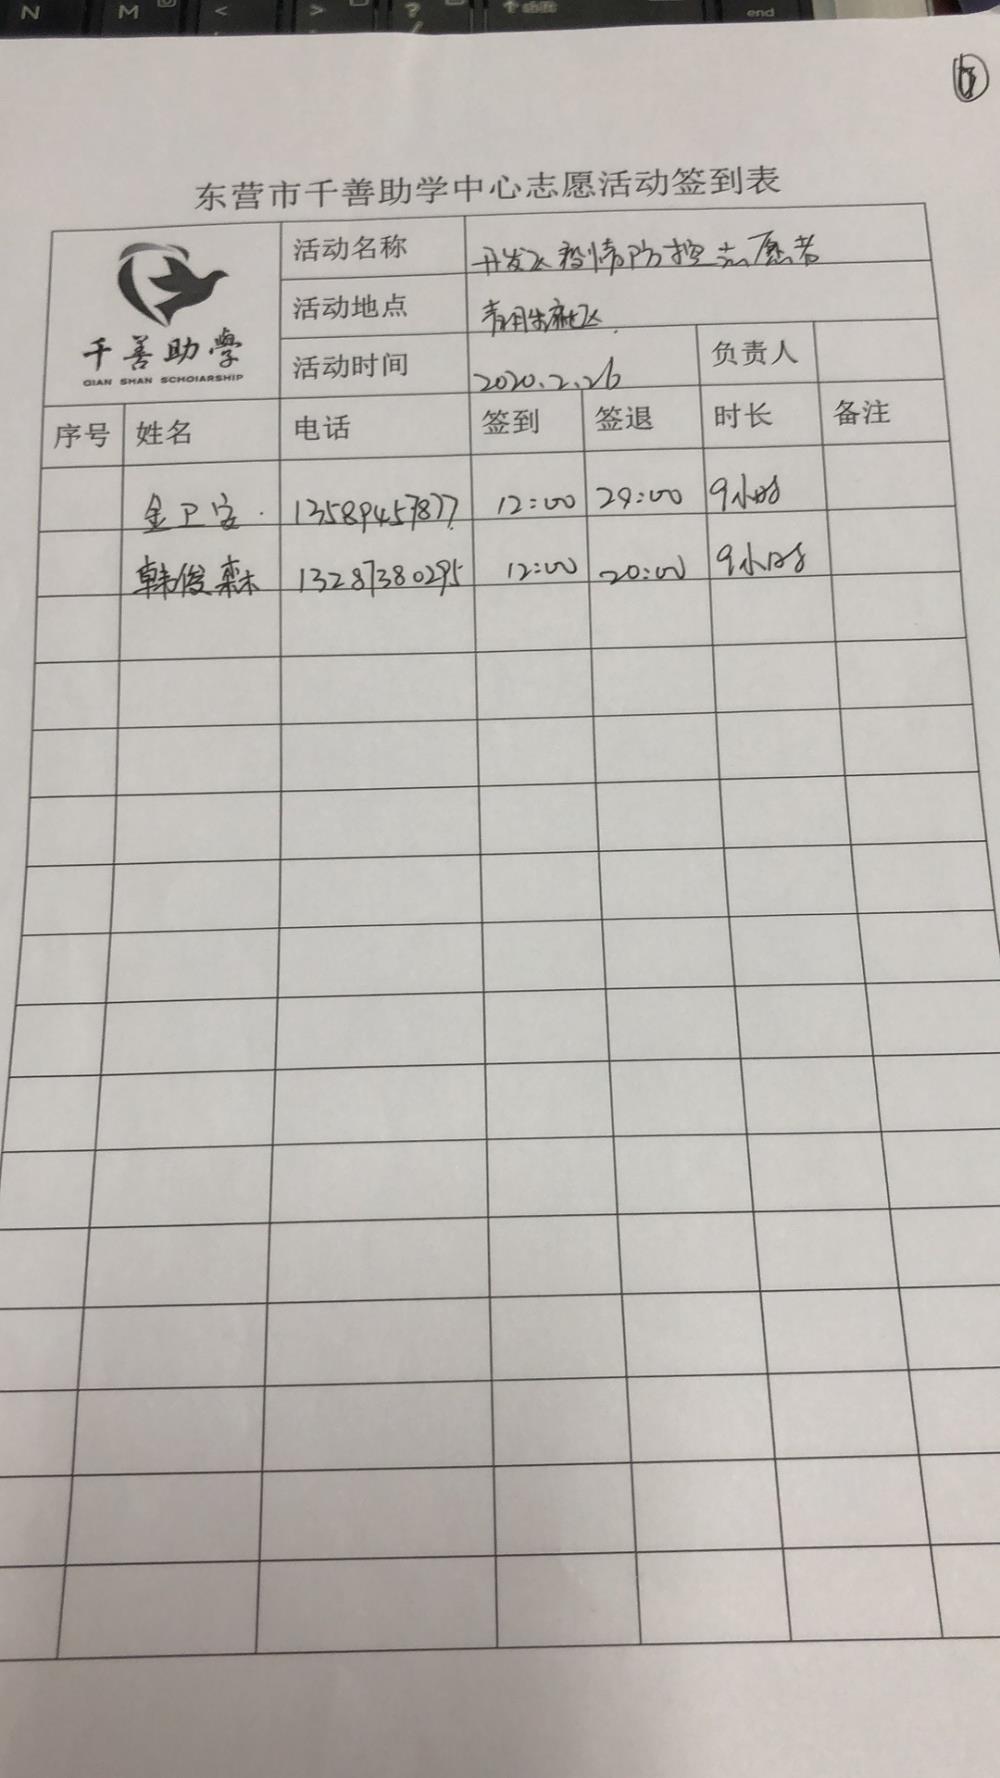 N M < > ? ↑ shift end
东营市千善助学中心志愿活动签到表
千善助學
QIAN SHAN SCHOLARSHIP
活动名称 开发区疫情防控志愿者
活动地点 社区
活动时间 2020.2.26 负责人
序号 姓名 电话 签到 签退 时长 备注
金卫客 13589457877 12:00 29:00 9小时
韩俊森 13287380295 12:00 20:00 9小时